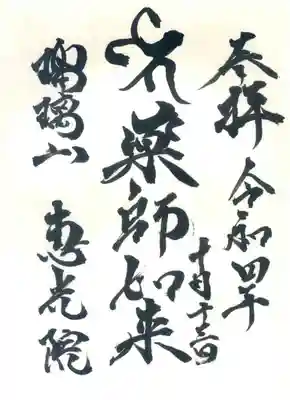 奉拝 令和四年
十月十六日
薬師如来
瑠璃山 恵光院